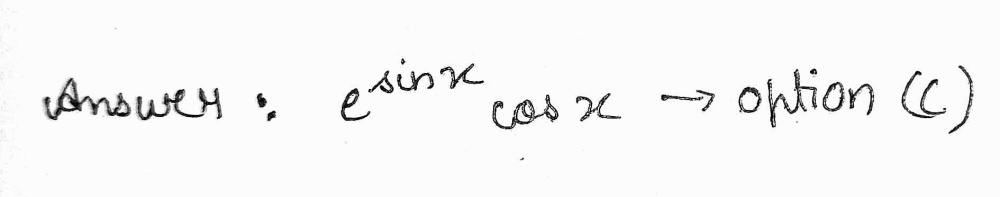 Answer : e^sinx cos x → option (C)